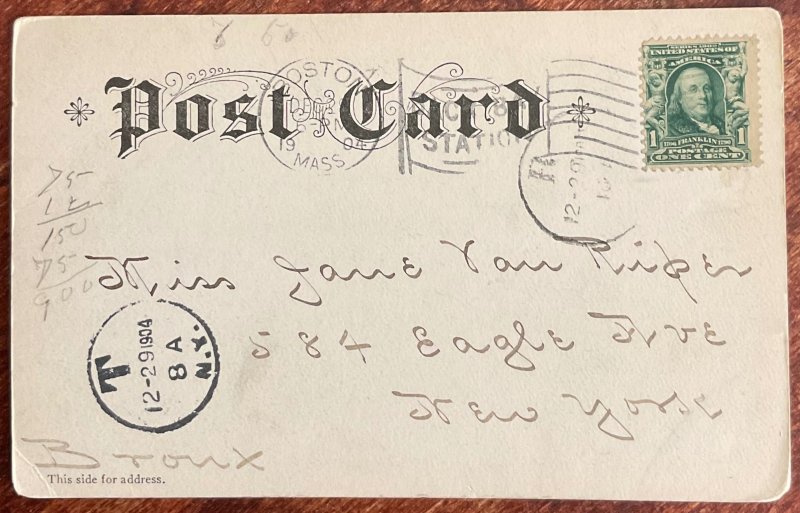 7 50
Post Card
BOSTON
DEC
PM
1904
MASS.
STATION
SERIES 1902
UNITED STATES OF
AMERICA
1706 FRANKLIN 1790
1 POSTAGE 1
ONE CENT
12-29
75
12
150
75
900
Miss Jane Van Riper
584 Eagle Ave
New York
T
12-29 1904
8 A
N.Y.
Bronx
This side for address.